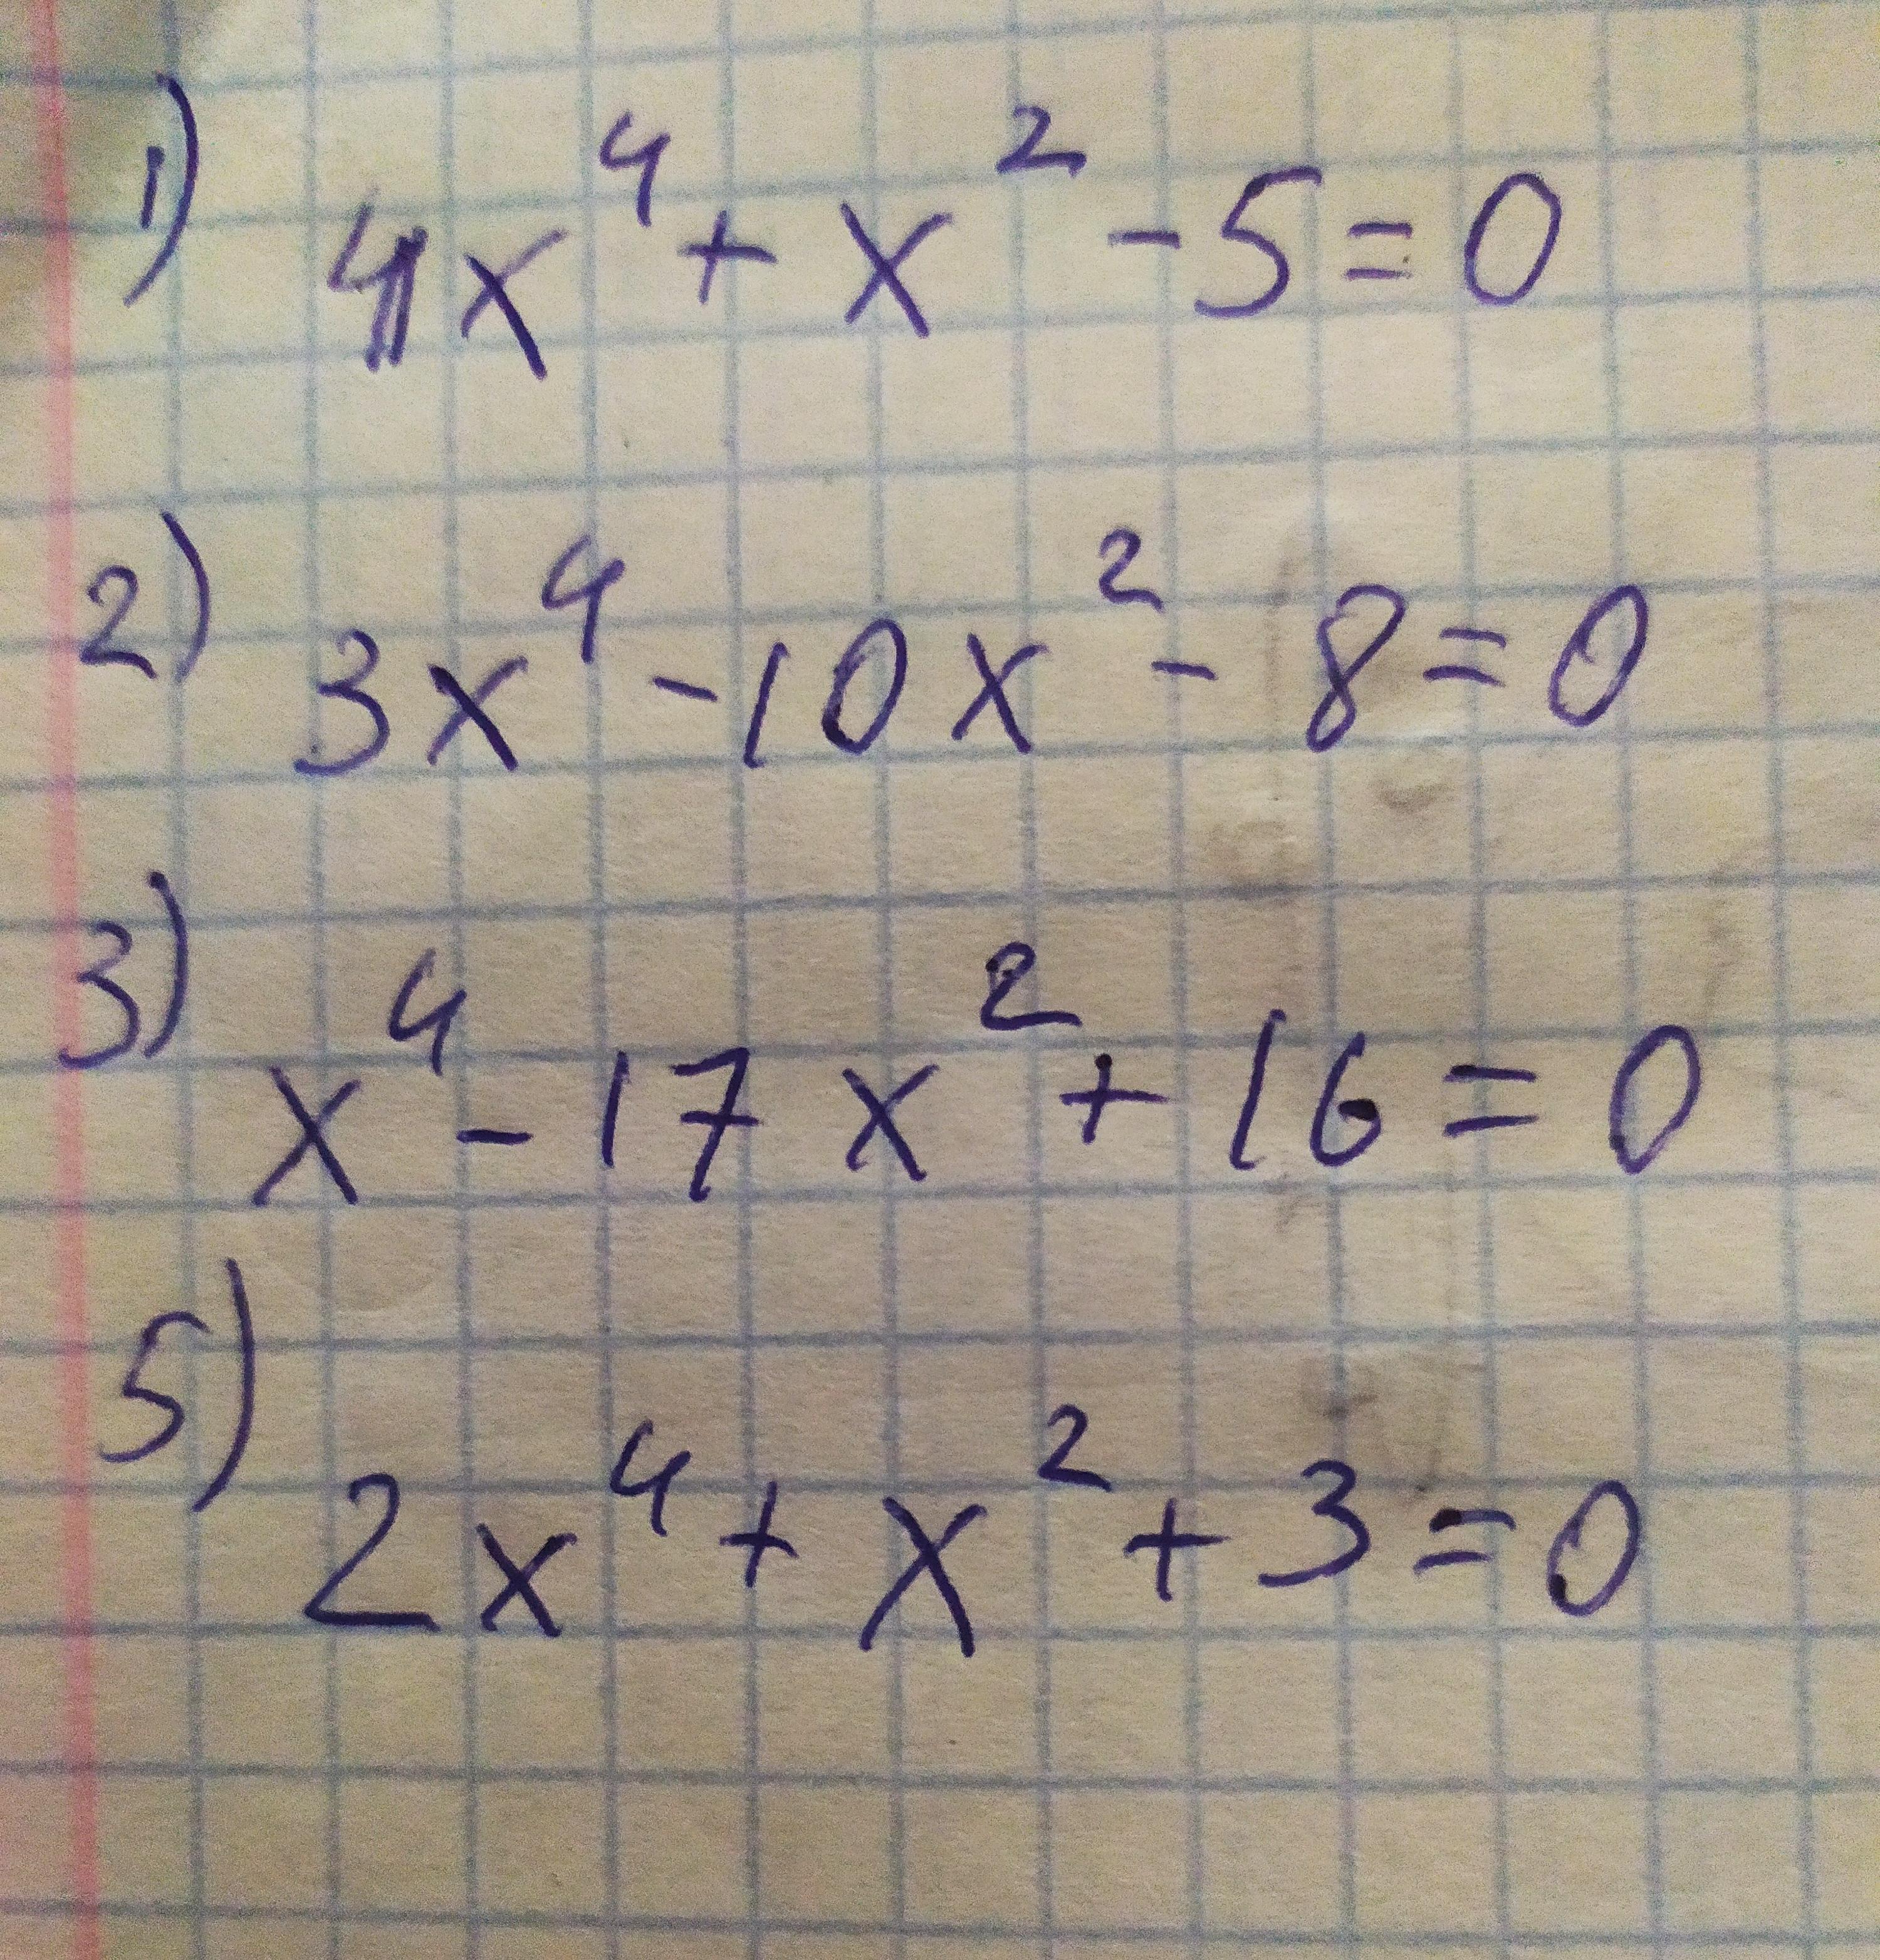 1) 4x⁴ + x² - 5 = 0
2) 3x⁴ - 10x² - 8 = 0
3) x⁴ - 17x² + 16 = 0
5) 2x⁴ + x² + 3 = 0